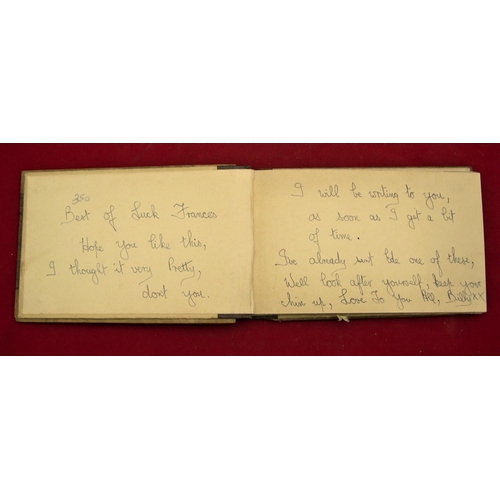 350
Best of Luck Frances
Hope you like this,
I thought it very Pretty,
dont you.
I will be writing to you,
as soon as I get a bit
of time.
I've already sent one of these,
Well look after yourself, keep your
chin up, Love To You All, Billy xx